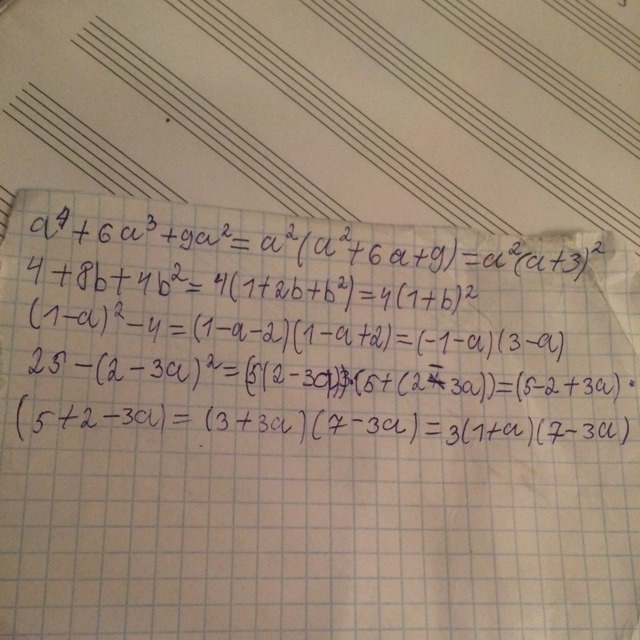 a⁴+6a³+9a²=a²(a²+6a+9)=a²(a+3)²
4+8b+4b²=4(1+2b+b²)=4(1+b)²
(1-a)²-4=(1-a-2)(1-a+2)=(-1-a)(3-a)
25-(2-3a)²=(5(2-3a))·(5+(2-3a))=(5-2+3a)·
(5+2-3a)=(3+3a)(7-3a)=3(1+a)(7-3a)